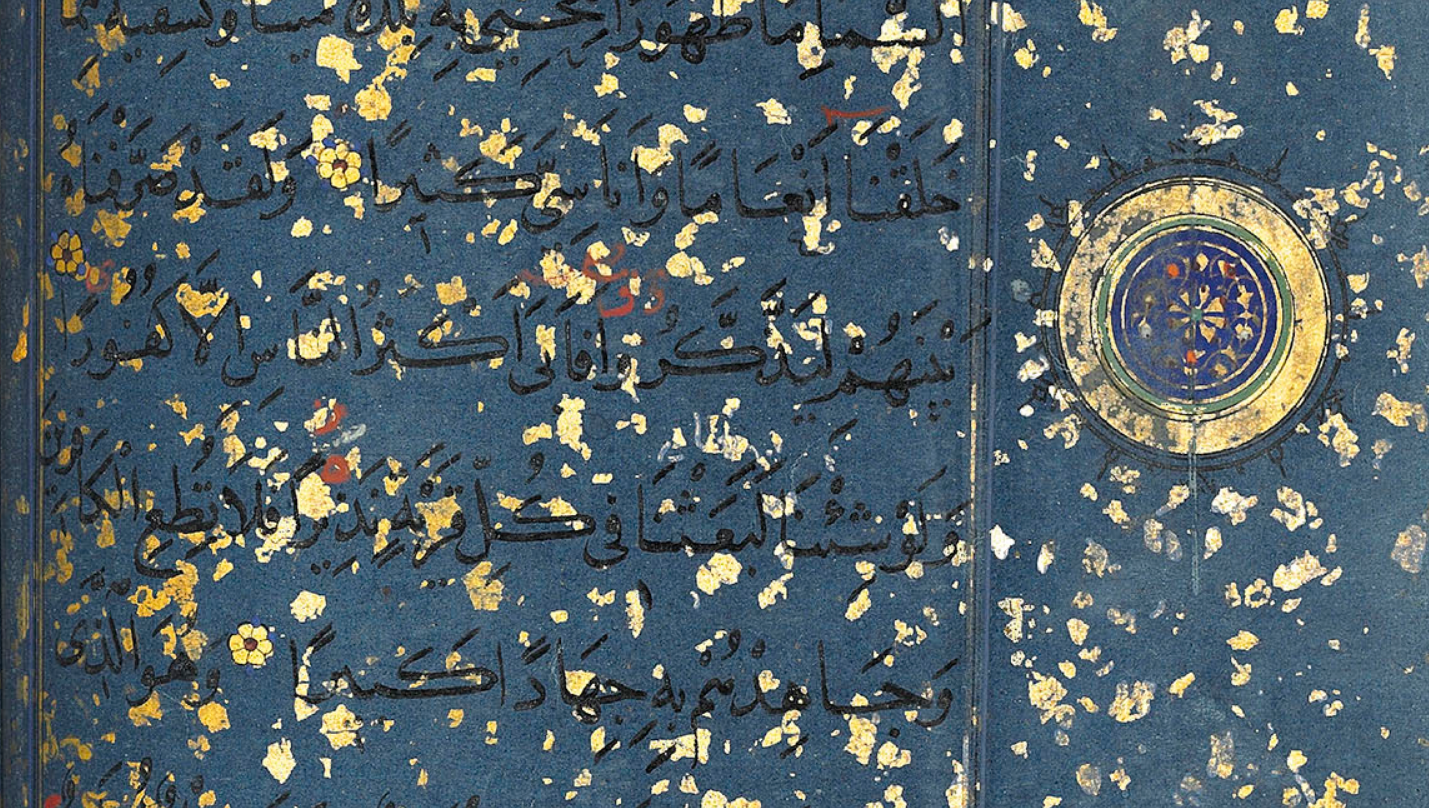 السماء ماء طهورا لنحيي به بلدة ميتا ونسقيه مما
خَلَقْنَا أَنْعَامًا وَأَنَاسِيَّ كَثِيرًا وَلَقَدْ صَرَّفْنَاهُ
بَيْنَهُمْ لِيَذَّكَّرُوا فَأَبَى أَكْثَرُ النَّاسِ إِلَّا كُفُورًا
وَلَوْ شِئْنَا لَبَعَثْنَا فِي كُلِّ قَرْيَةٍ نَذِيرًا فَلَا تُطِعِ الْكَافِرِينَ
وَجَاهِدْهُمْ بِهِ جِهَادًا كَبِيرًا وَهُوَ الَّذِي